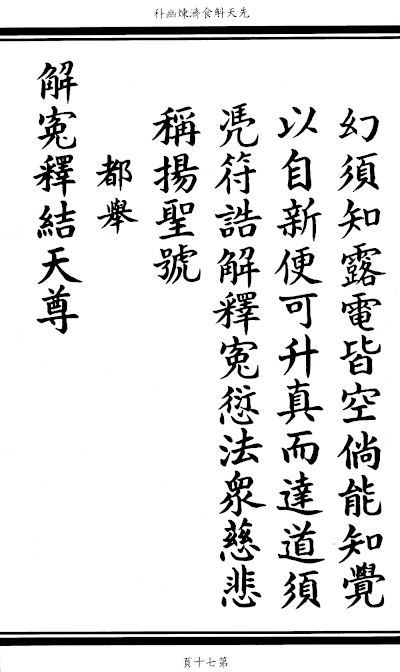 先天斛食濟煉幽科
幻須知露電皆空倘能知覺
以自新便可升真而達道須
凴符誥解釋寃愆法衆慈悲
稱揚聖號
都舉
解寃釋結天尊
第七十頁